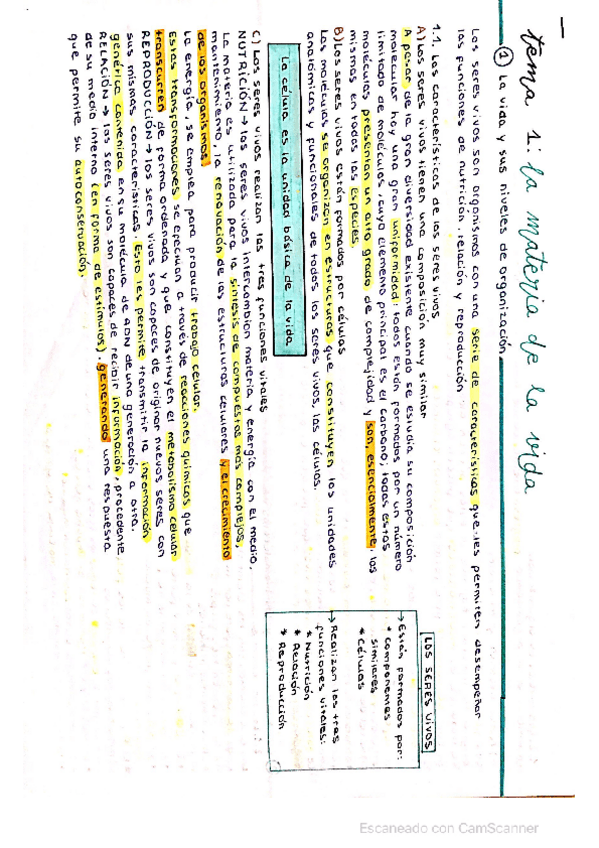 tema 1: la materia de la vida
1 La vida y sus niveles de organización
Los seres vivos son organismos con una serie de características que les permiten desempeñar
las funciones de nutrición, relación y reproducción.
1.1. Las características de los seres vivos
A) Los seres vivos tienen una composición muy similar
A pesar de la gran diversidad existente cuando se estudia su composición
molecular hay una gran uniformidad: todos están formados por un número
limitado de moléculas, cuyo elemento principal es el carbono; todas estas
moléculas presentan un alto grado de complejidad y son, esencialmente, las
mismas en todas las especies.
B) Los seres vivos están formados por células
Las moléculas se organizan en estructuras que constituyen las unidades
anatómicas y funcionales de todos los seres vivos, las células.
La célula es la unidad básica de la vida
C) Los seres vivos realizan las tres funciones vitales
NUTRICIÓN → los seres vivos intercambian materia y energía con el medio.
La materia es utilizada para la síntesis de compuestos más complejos,
mantenimiento, la renovación de las estructuras celulares y el crecimiento
de los organismos.
La energía, se emplea para producir trabajo celular.
Estas transformaciones se efectúan a través de reacciones químicas que
transcurren de forma ordenada y que constituyen el metabolismo celular
REPRODUCCIÓN → los seres vivos son capaces de originar nuevos seres con
sus mismas características. Esto les permite transmitir la información
genética contenida en su molécula de ADN de una generación a otra.
RELACIÓN → los seres vivos son capaces de recibir información, procedente
de su medio interno (en forma de estímulos), generando una respuesta
que permite su autoconservación.
LOS SERES VIVOS
→ Están formados por:
* componentes
similares
* células
→ Realizan las tres
funciones vitales:
* Nutrición
* Relación
* Reproducción
Escaneado con CamScanner